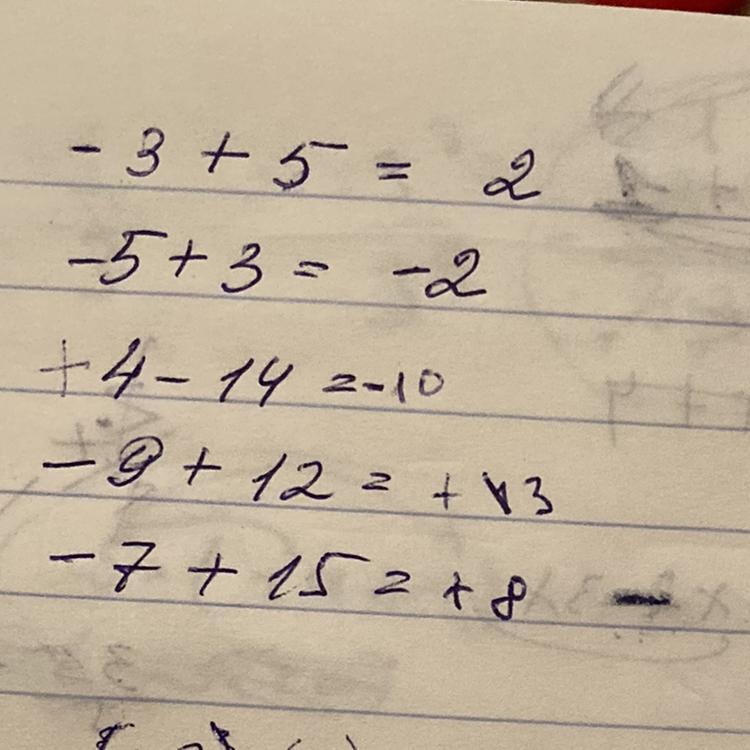 -3 + 5 = 2
-5 + 3 = -2
+4 - 14 = -10
-9 + 12 = +3
-7 + 15 = +8 -